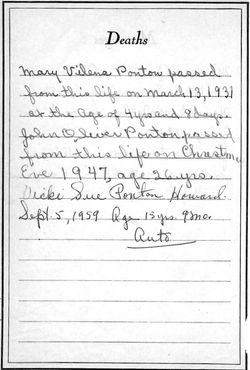 Deaths
Mary Vilena Ponton passed
from this life on March 13, 1931
at the age of 4 yrs and 8 days.
John Oliver Ponton passed
from this life on Christmas
Eve 1947, age 26 yrs.
Vicki Sue Ponton Howard.
Sept. 5, 1959 Age 15 yrs. 9 mo.
Auto